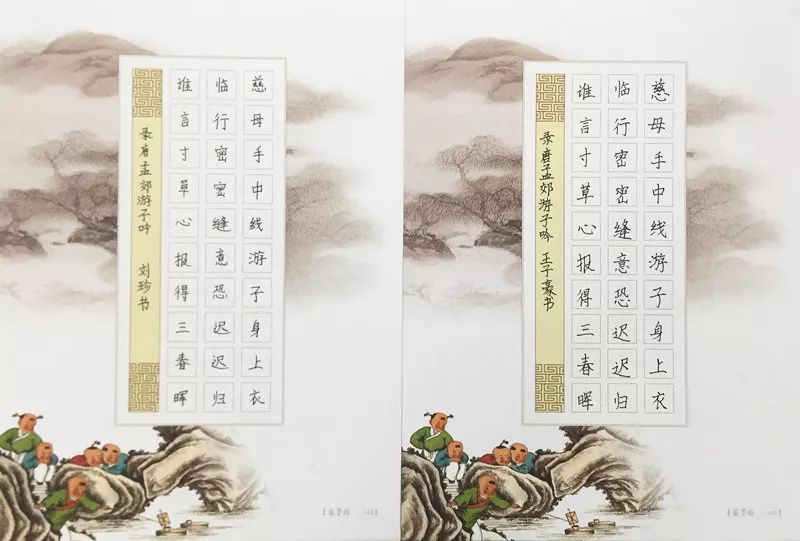 慈母手中线游子身上衣
临行密密缝意恐迟迟归
谁言寸草心报得三春晖
录唐孟郊游子吟 刘珍书
慈母手中线游子身上衣
临行密密缝意恐迟迟归
谁言寸草心报得三春晖
录唐孟郊游子吟 王子豪书